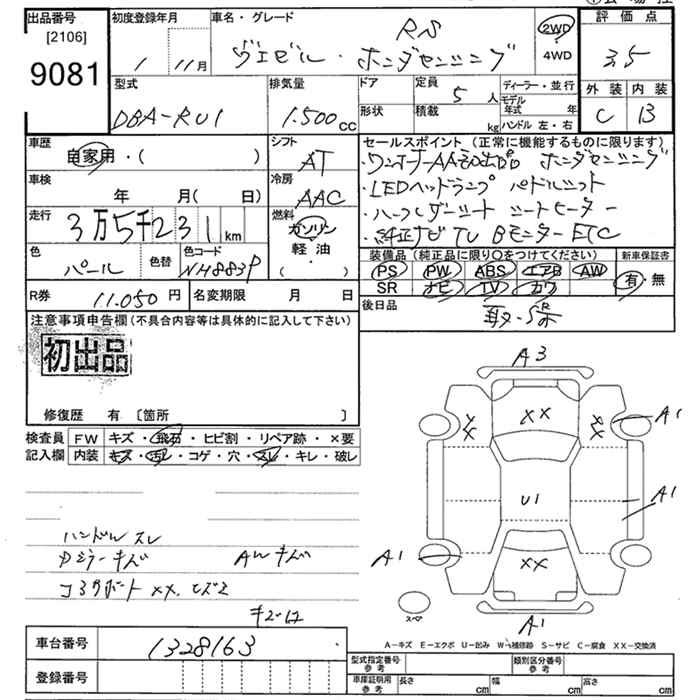 出品番号
[2106]
9081
初度登録年月
1 11月
車名・グレード
RS
ヴェゼル・ホンダセンシング
2WD
4WD
評価点
3.5
外装 内装
C B
型式
DBA-RU1
排気量
1.500cc
ドア
形状
定員
5人
積載
kg
ディーラー・並行
モデル年式 年
ハンドル 左・右
車歴
自家用・( )
シフト
AT
車検
年 月( 日)
冷房
AAC
走行
3万5千231km
燃料
ガソリン
軽・油
( )
色
パール
色替
色コード
NH883P
R券
11.050円
名変期限 月 日
セールスポイント(正常に機能するものに限ります)
・ワンオーナーAA初出品 ホンダセンシング
・LEDヘッドランプ パドルシフト
・ハーフレザーシート シートヒーター
・純正ナビ TV Bモニター ETC
装備品(純正品に限り○をつけてください)
新車保証書
PS PW ABS エアB AW
SR ナビ TV カワ
有・無
後日品
注意事項申告欄(不具合内容等は具体的に記入して下さい)
初出品
修復歴 有〔箇所 〕
検査員
記入欄
FW キズ・飛石・ヒビ割・リペア跡・×要
内装 キズ・汚レ・コゲ・穴・スレ・キレ・破レ
ハンドル スレ
Dミラーキズ AWキズ
コアサポートXX.ヒズミ
キズ・凹
A3
XX
A1
U1
A1
A1
XX
A1
スペア
A-キズ E-エクボ U-凹み W-補修跡 S-サビ C-腐食 XX-交換済
車台番号
1328163
登録番号
型式指定番号
参考
類別区分番号
参考
車庫証明用
参考
長さ cm
幅 cm
高さ cm